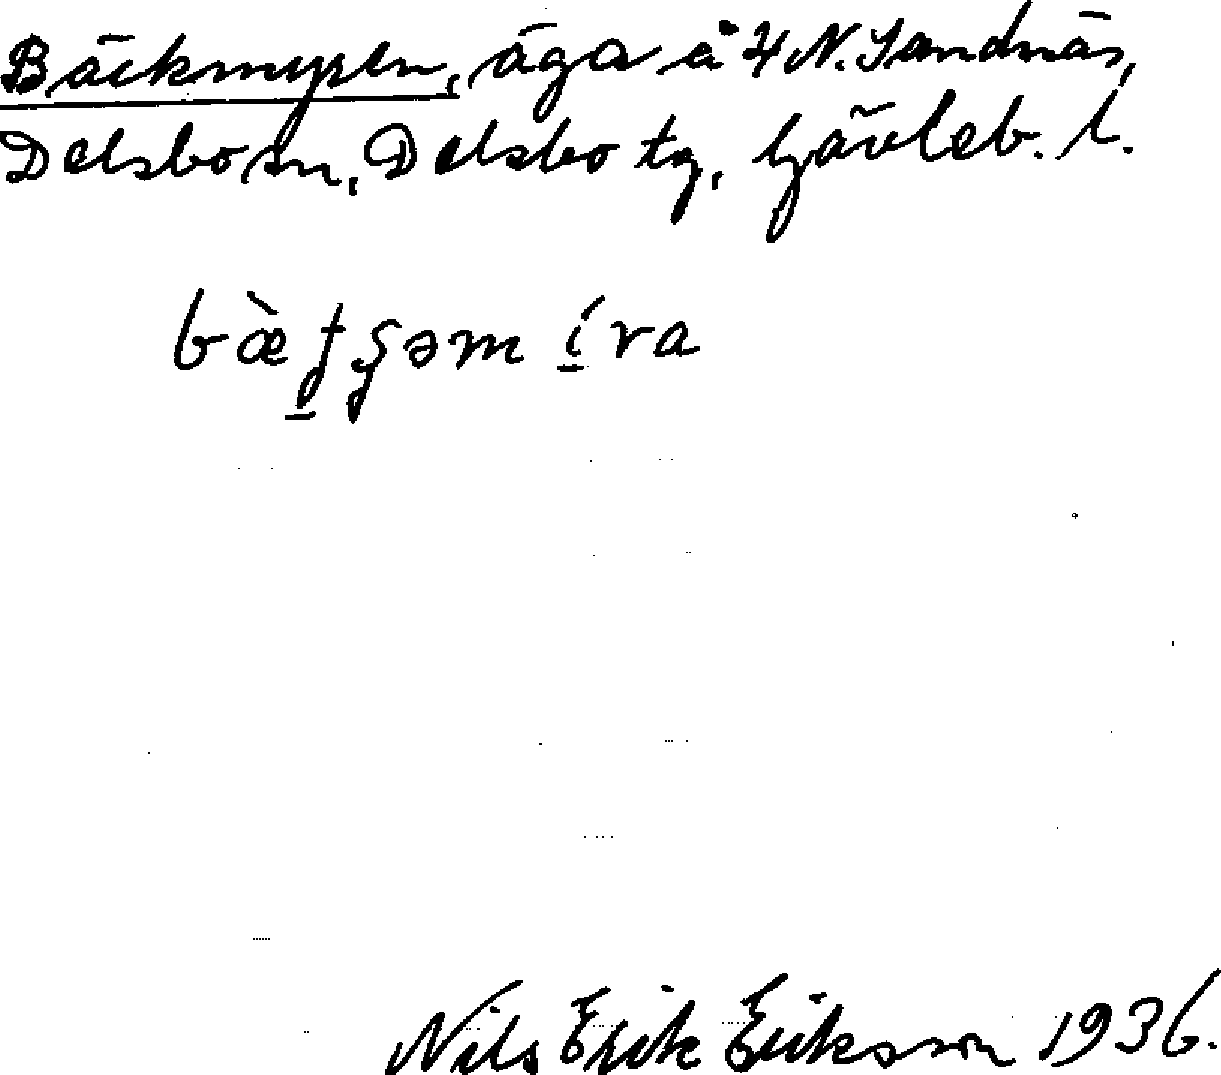 Bäckmyren, äga å 4 N. Sandnäs,
Delsbo sn, Delsbo tg, Gävleb. l.
Nils Erik Eriksson 1936.